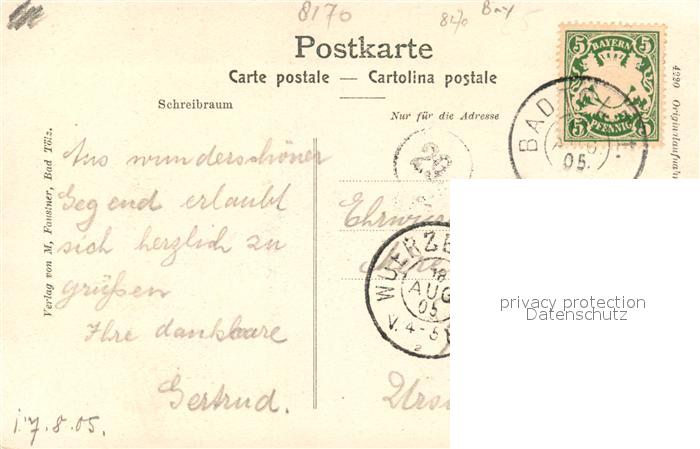 8170
8170 Bay
Postkarte
Carte postale — Cartolina postale
Schreibraum
Nur für die Adresse
5 BAYERN 5
5 PFENNIG 5
BAD
05.
4220 Originalaufna
Verlag von M. Faustner, Bad Tölz.
Aus wunderschöner
Gegend erlaubt
sich herzlich zu
grüßen
Ihre dankbare
Gertrud.
17.8.05.
Ehrwür
WUERZB
18
AUG
05
V. 4-5
2
Ursu
privacy protection
Datenschutz